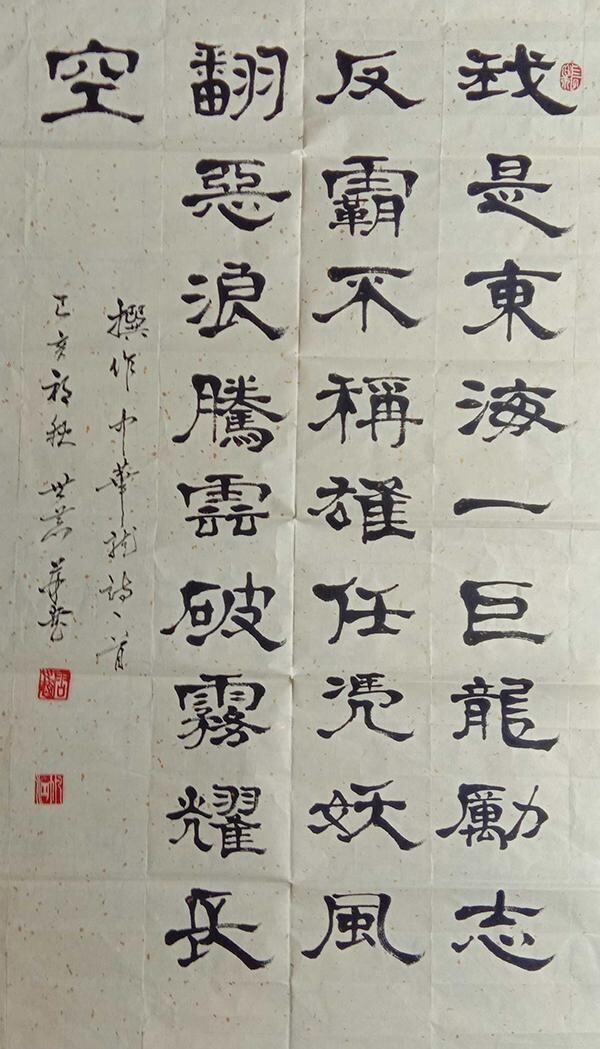 我是東海一巨龍勵志
反霸不稱雄任憑妖風
翻惡浪騰雲破霧耀長
空
撰作中華龍詩一首
己亥初秋世善并書